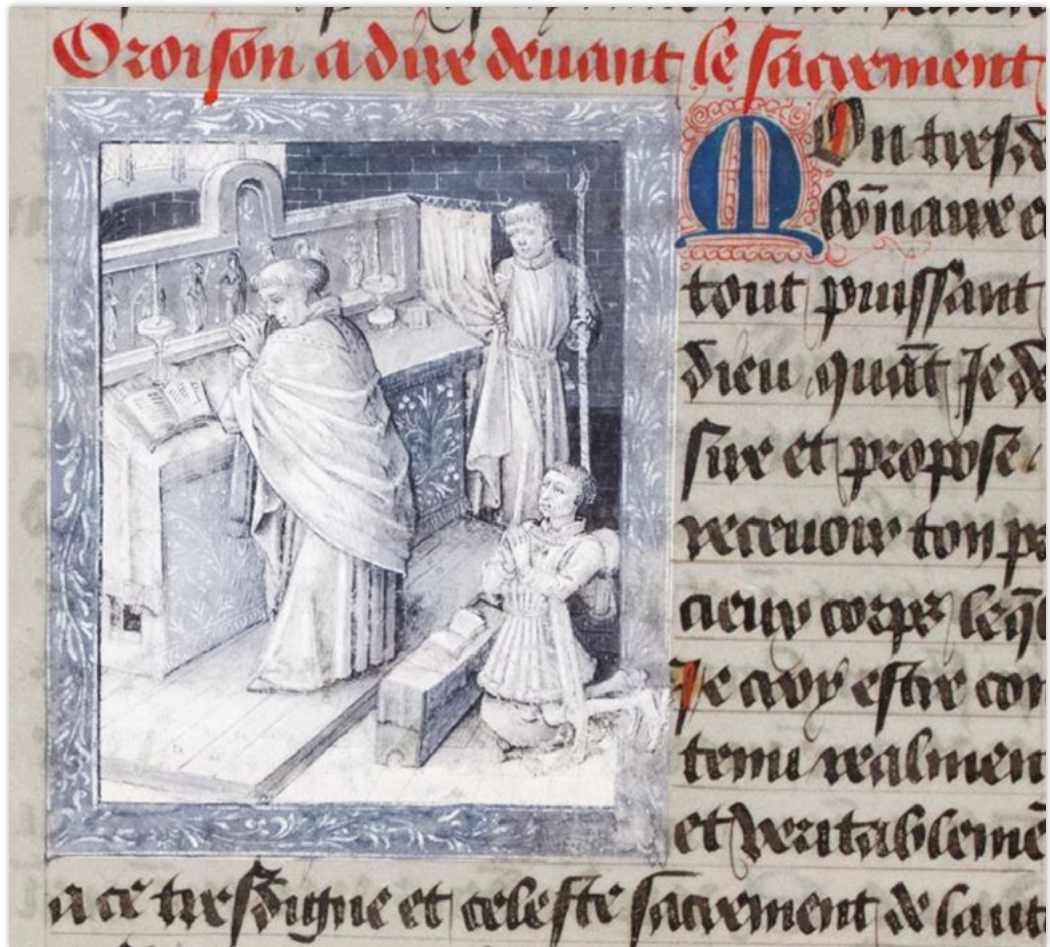 Oroison a dire deuant le sacrement
Mon tresd
bōnaire e
tout puissant
dieu quāt Je de
sire et propose
receuoir ton pr
cieux corps leq̄l
Je croy estre con
tenu realmen
et veritablemē
a ce tresdigne et celeste sacrement de laut